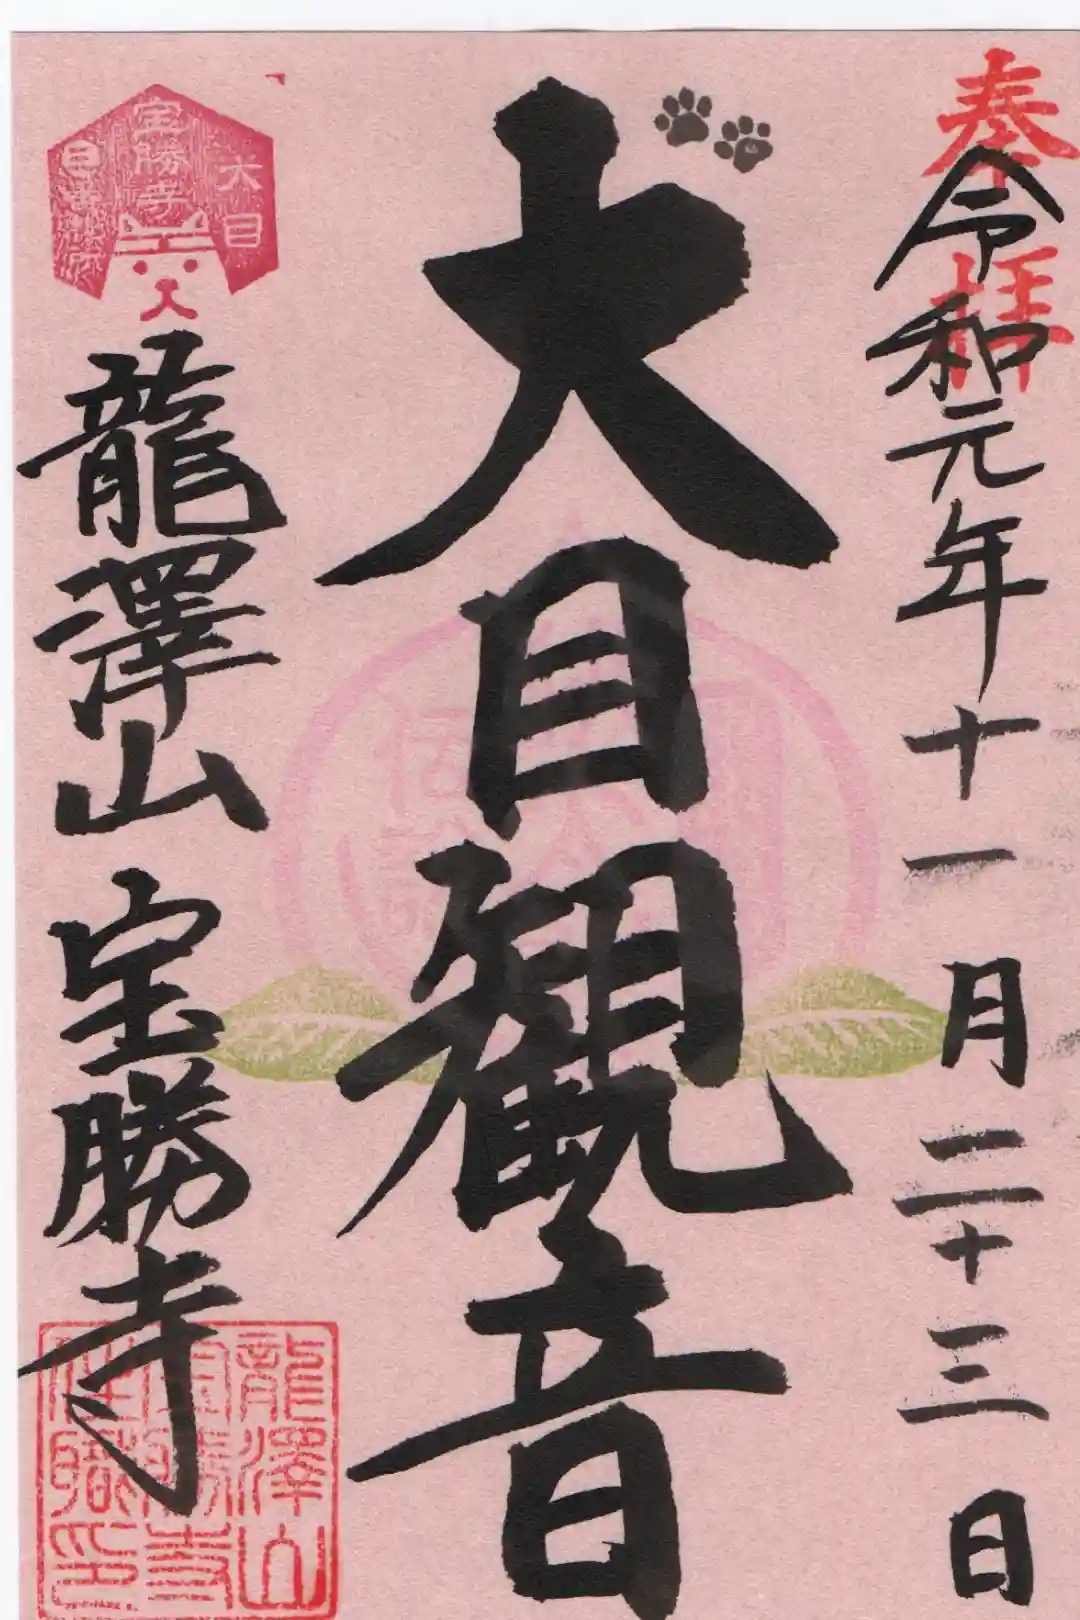 奉拝
令和元年十一月二十三日
大目観音
宝勝寺
大目
龍澤山 宝勝寺
龍澤山
宝勝寺
住職印